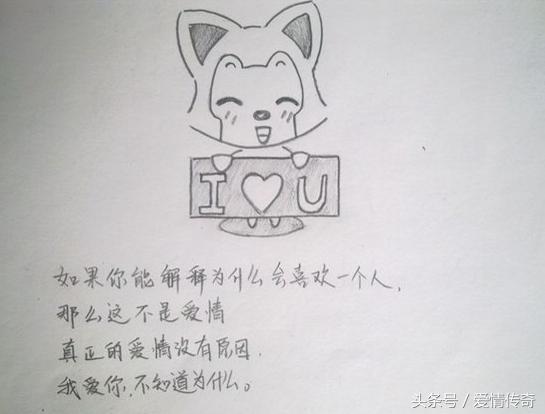 I ♡ U
如果你能解释为什么会喜欢一个人,
那么这不是爱情
真正的爱情没有原因.
我爱你,不知道为什么。
头条号 / 爱情传奇